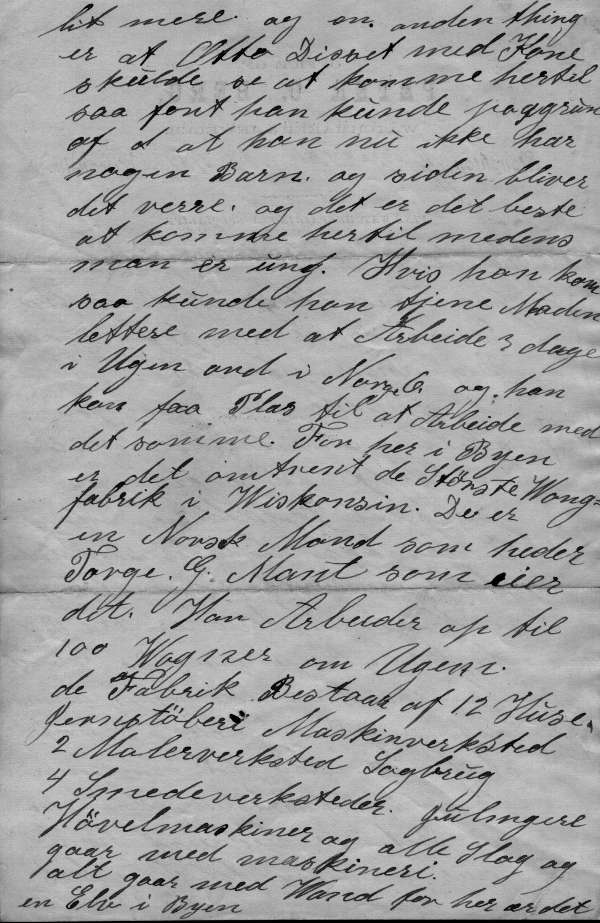 lit mere. og en anden thing
er at Otto Disvet med Kone
skulde se at komme hertil
saa fort han kunde paagrun
af d at han nu ikke har
nogen Barn. og siden bliver
det verre. og det er det beste
at komme hertil medens
man er ung. Hvis han kom
saa kunde han tjene Maden
lettere med at Arbeide 3 dage
i Ugen end i Norge og han
kan faa Plas til at Arbeide med
det samme. For her i Byen
er det omtrent de Störste Wong=
fabrik i Wiskonsin. De er
en Norsk Mand som heder
Targe. G. Mant som eier
dit. Han Arbeider op til
100 Wogner om Ugen.
de Fabrik Bestaar af 12 Huse.
Jernstöberi Maskinverksted
2 Malerverksted Sagbrug
4 Smedeverksteder.
Hövelmaskiner og alle Slag og
gaar med maskineri.
alt gaar med Wand for her er det
en Elv i Byen